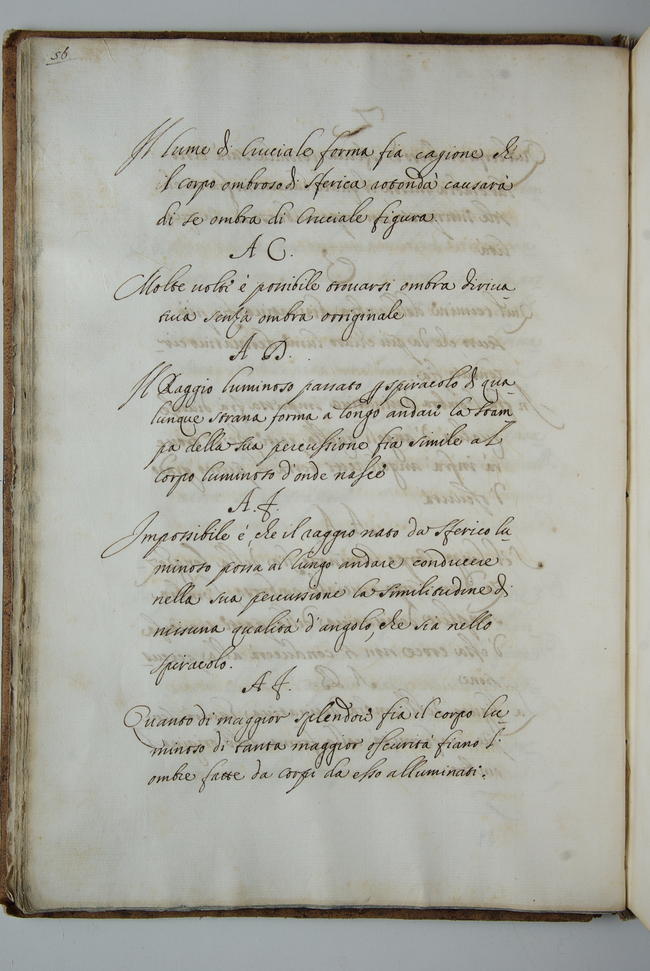 56
Il lume di Cruciale forma fia cagione che
il corpo ombroso di sferica rotondà causarà
di se ombra di Cruciale figura.
A C.
Molte volte è possibile trovarsi ombra diriva
tiva senza ombra originale
A D.
Il Raggio luminoso passato p spiracolo di qua
lunque strana forma a longo andare la stam
pa della sua percussione fia simile al
corpo luminoso d'onde nasce
A. f.
Impossibile é, che il raggio nato da sferico lu
minoso possa al lungo andare conducere
nella sua percussione la similitudine di
nissuna qualità d'angolo, che sia nello
spiracolo.
A f.
Quanto di maggior splendore fia il corpo lu
minoso di tanta maggior oscurità fiano l'
ombre fatte da corpi da esso alluminati.